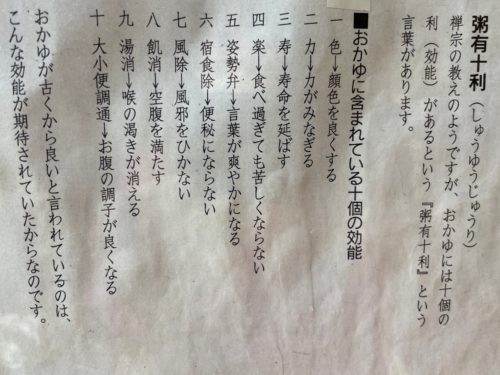 粥有十利（しゅうゆうじゅうり）
禅宗の教えのようですが、おかゆには十個の
利（効能）があるという『粥有十利』という
言葉があります。
■おかゆに含まれている十個の効能
一 色→顔色を良くする
二 力→力がみなぎる
三 寿→寿命を延ばす
四 楽→食べ過ぎても苦しくならない
五 姿勢弁→言葉が爽やかになる
六 宿食除→便秘にならない
七 風除→風邪をひかない
八 飢消→空腹を満たす
九 湯消→喉の渇きが消える
十 大小便調通→お腹の調子が良くなる
おかゆが古くから良いと言われているのは、
こんな効能が期待されていたからなのです。